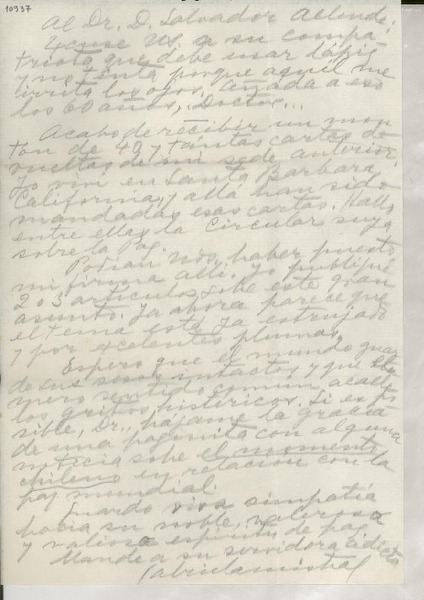 10937
Al Dr. D. Salvador Allende.
Excuse Ud. a su compa-
triota que debe usar lápiz
y no tinta porque aquél me
irrita los ojos. Añada a eso
los 60 años, Doctor...
Acabo de recibir un mon-
tón de 40 y tantas cartas de-
vueltas de mi sede anterior.
Yo viví en Santa Bárbara,
California, y allá han sido
mandadas esas cartas. Hallo
entre ellas la Circular suya
sobre la Paz.
Podían Uds. haber puesto
mi firma allí. Yo publiqué
2 o 3 artículos sobre este gran
asunto. Ya ahora parece que
el tema está ya estrujado
y por excelentes plumas.
Espero que el mundo guar-
de sus sesos intactos y que el
mero sentido común acalle
los gritos histéricos. Si es po-
sible, Dr., hájame la gracia
de una paginita con alguna
noticia sobe el momento
chileno en relación con la
paz mundial.
Guardo viva simpatía
hacia su noble, valeroso
y valioso espíritu de paz
Mande a su servidora adicta
Gabriela Mistral